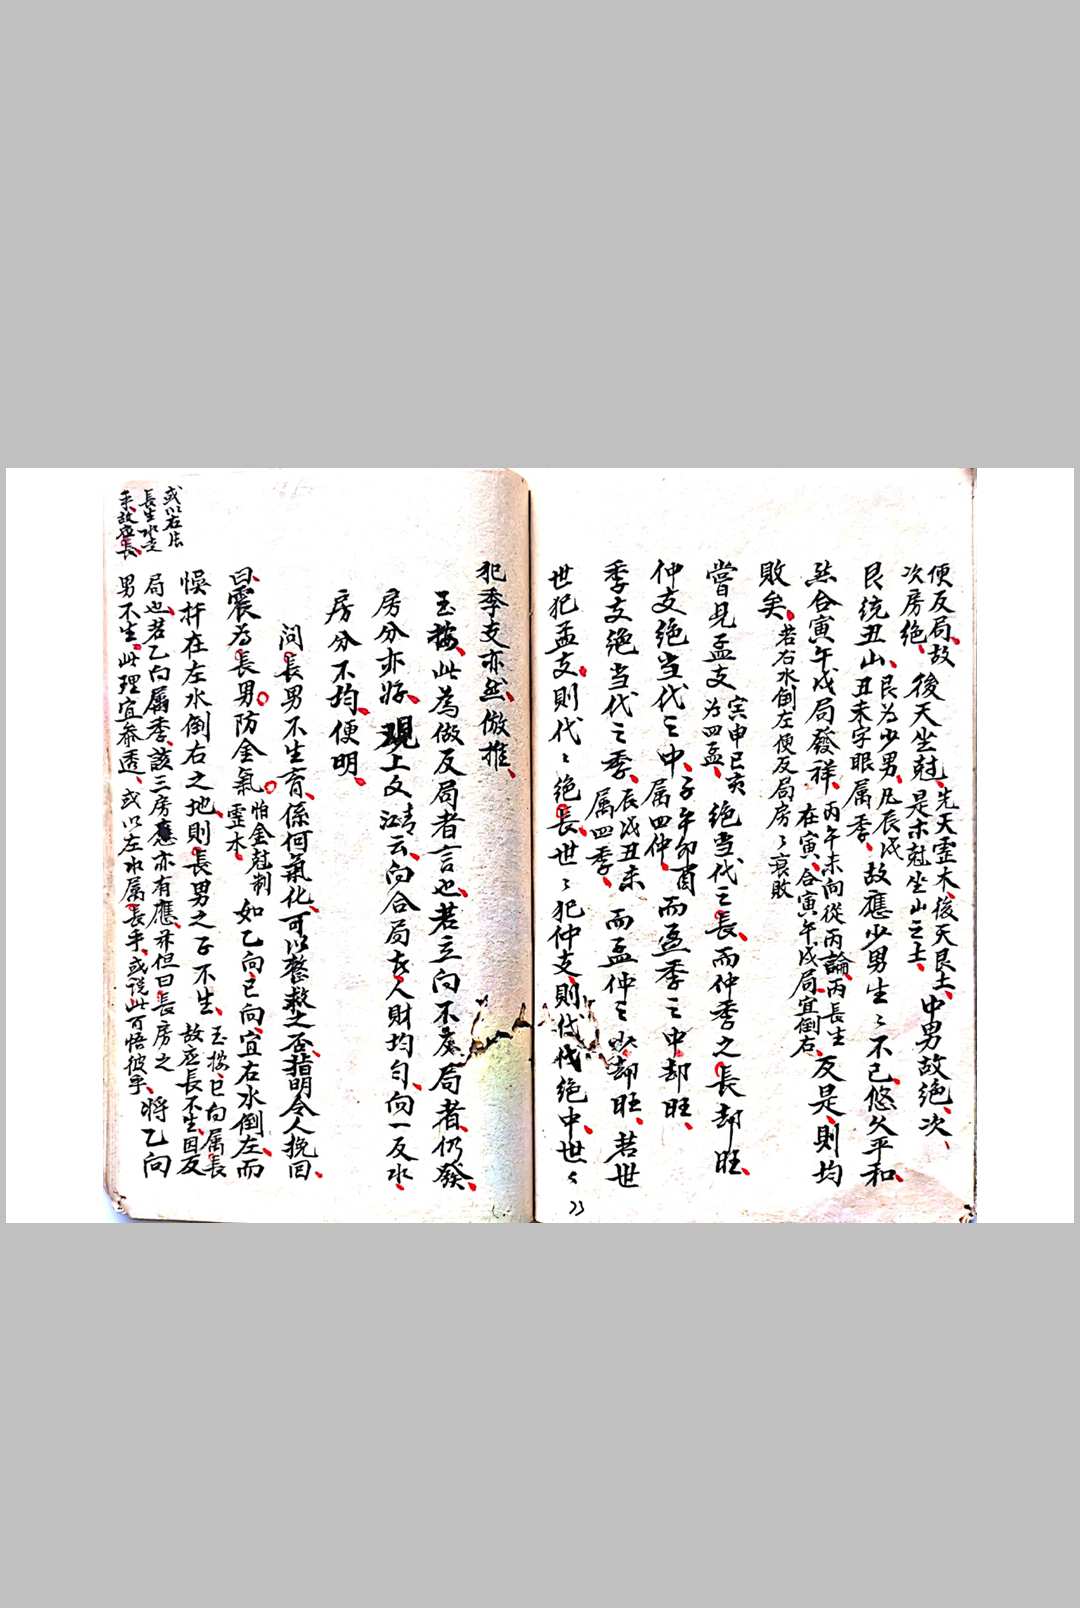 便反局、故
次房絶、
後天坐尅、
先天䨩木、後天艮土、
是木尅坐山之土、
中男故絶、次、
艮統丑山、
艮為少男、凡辰戌
丑未字眼屬季、
故應少男生〻不已、悠久平和、
然合寅午戌局發祥、
丙午未向從丙論、丙長生
在寅、合寅午戌局、宜倒右、
反是、則均
敗矣、
若右水倒左便反局房〻衰敗
嘗見孟支
寅申巳亥
为四孟、
絶当代之長、而仲季之長却旺、
仲支絶当代之中、
子午卯酉
屬四仲、
而孟季之中却旺、
季支絶当代之季、
辰戌丑未
属四季、
而孟仲之少却旺、若世
世犯孟支、則代〻絶長、世〻犯仲支、則代代絶中、世〻
犯季支亦然、倣推、
玉按、此為做反局者言也、若立向不處局者、仍發、
房分亦好、現上文
云、向合局去、人財均匀、向一反水、
房分不均、便明、
問長男不生育、係何氣化、可以整救之否、指明令人挽回、
曰、震為長男。防金氣。
怕金尅制
䨩木、
如乙向、巳向、宜右水倒左、而
悞扦在左水倒右之地、則長男之子不生、
玉按、巳向属長
故应長不生、因反
局也、若乙向屬季、該三房應亦有應、并但曰長房之
男不生、此理宜參透、或以左水属長乎、或说此可悟彼乎、
將乙向
或以右法
長生水
来、故应長、